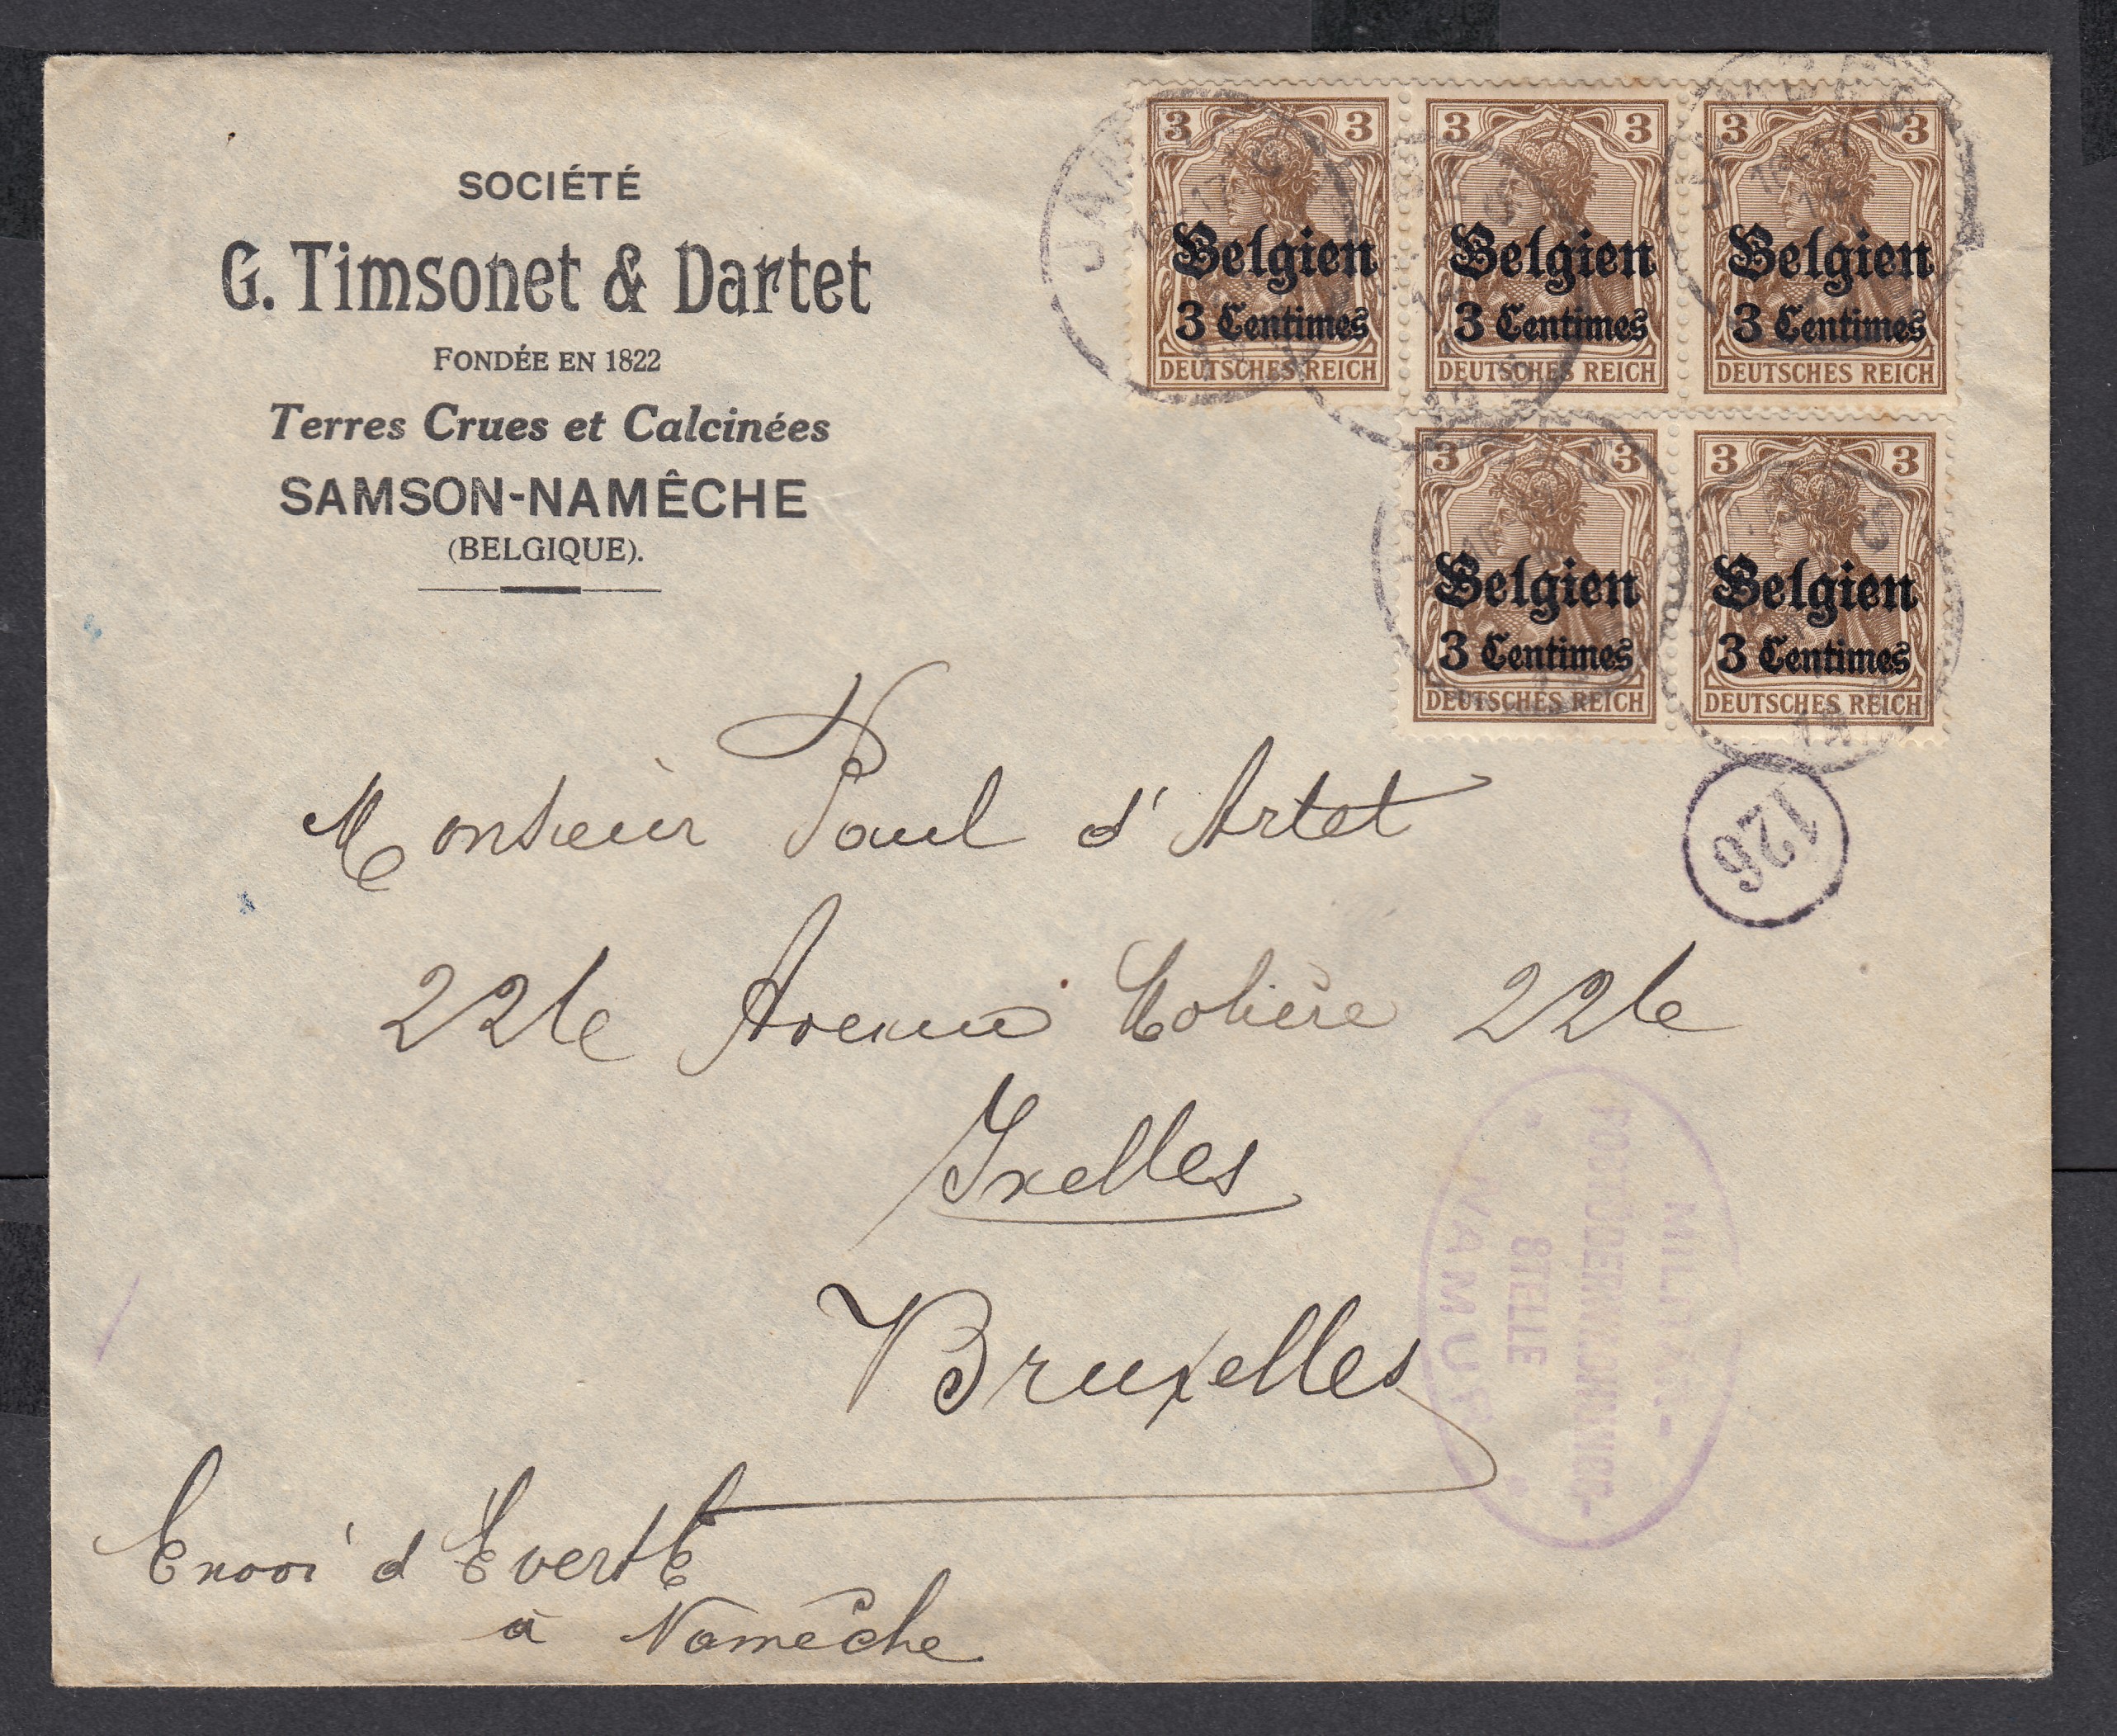 SOCIÉTÉ
G. Timsonet & Dartet
FONDÉE EN 1822
Terres Crues et Calcinées
SAMSON-NAMÊCHE
(BELGIQUE).
3 3
Belgien
3 Centimes
DEUTSCHES REICH
3 3
Belgien
3 Centimes
DEUTSCHES REICH
3 3
Belgien
3 Centimes
DEUTSCHES REICH
3 3
Belgien
3 Centimes
DEUTSCHES REICH
3 3
Belgien
3 Centimes
DEUTSCHES REICH
126
Monsieur Paul d'Artet
Avenue Molière
Ixelles
Bruxelles
POSTÜBERWACHUNGS-
STELLE
NAMUR
Envoi d
à Namêche